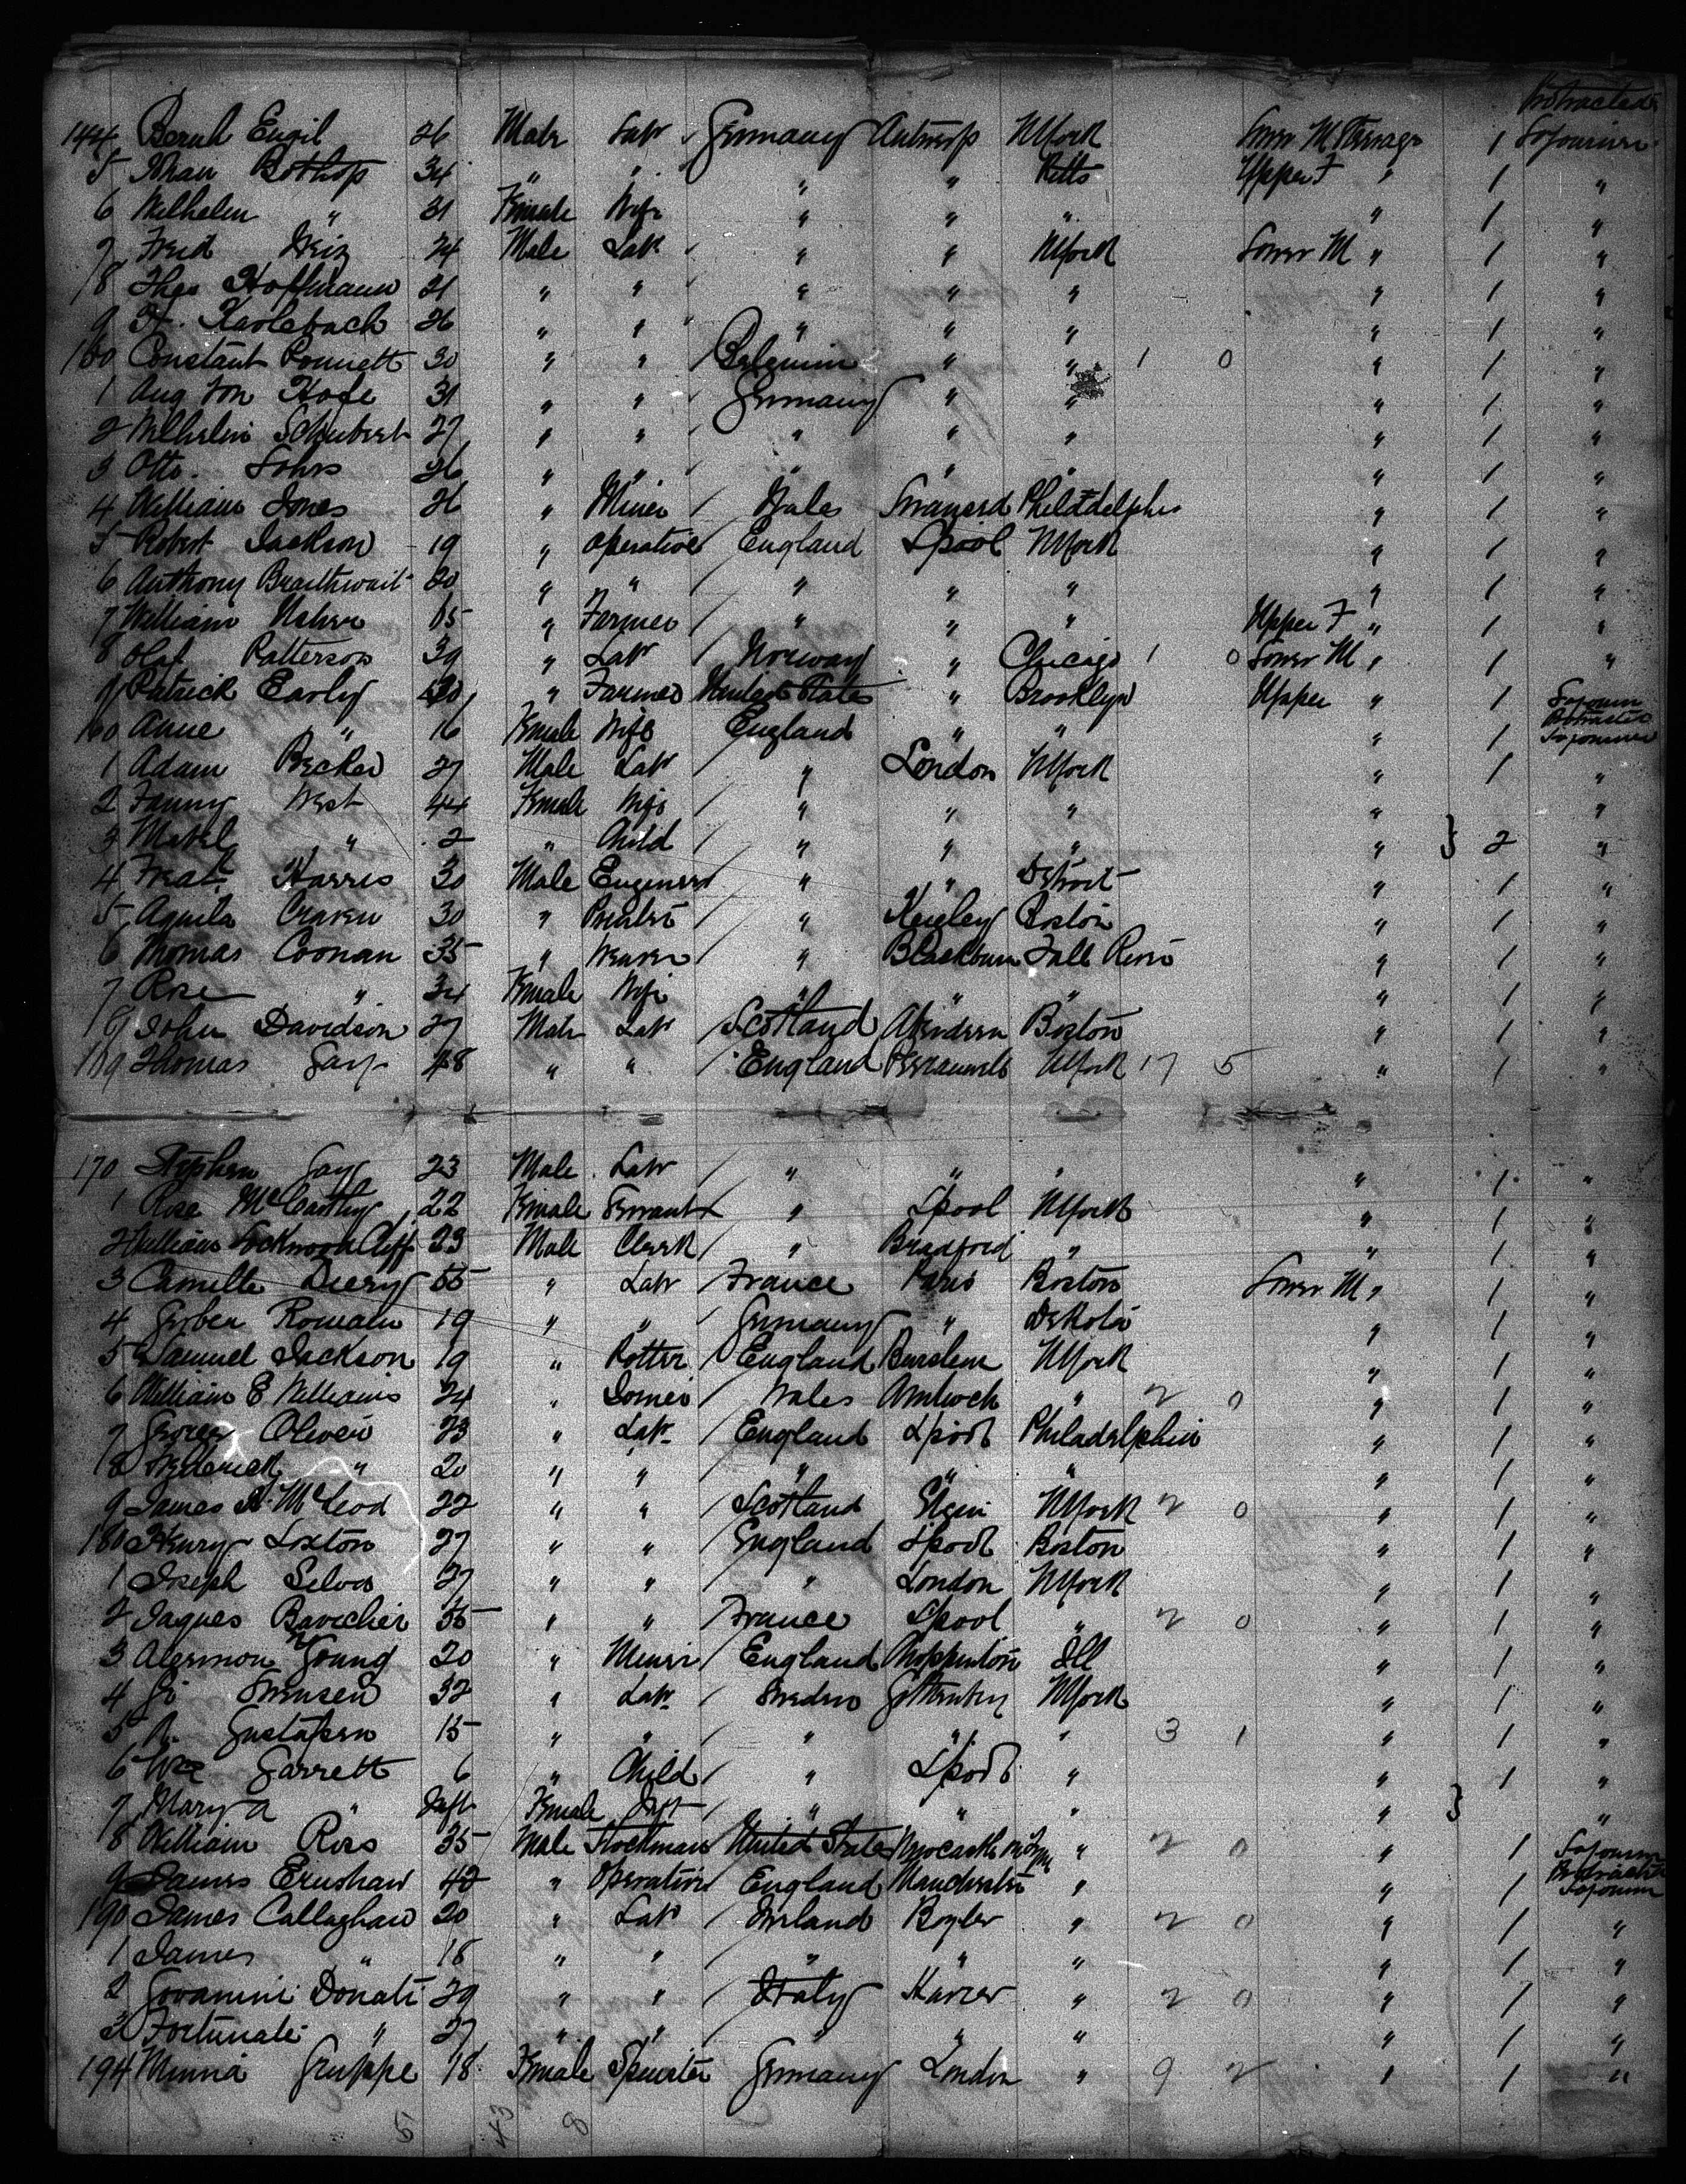 Protracted
144 Bernh Engil 26 Male Labr Germany Antwerp NYork Lower M Steerage 1 Sojourner
5 Bothop 34 " " " " Upper F " 1 "
6 Wilhelm " 31 Female Wife " " " " 1 "
7 Fred 24 Male Labr " " NYork Lower M " 1 "
8 Theo Hoffmann 21 " " " " " " 1 "
9 Karlebach 26 " " " " " " 1 "
150 Constant Ponnett 30 " " Belgium " " 1 0 " 1 "
1 Aug Von Hofe 31 " " Germany " " " 1 "
2 Wilhelm Schubert 27 " " " " " " 1 "
3 Otto Lohrs 26 " " " " " " 1 "
4 William Jones 26 " Miner Wales Philadelphia " 1 "
5 Robert Jackson 19 " Operative England Lpool NYork " 1 "
6 Anthony Braithwait 20 " " " " " " 1 "
7 William " Farmer " " " Upper F " 1 "
8 Olaf Patterson 39 " Labr Norway " Chicago 1 0 Lower M " 1 "
9 Patrick Early " Farmer United States " Brooklyn Upper " 1 Sojourn
160 Anne " 16 Female Wife England " " " 1 Protracted Sojourner
1 Adam Becker 27 Male Labr " London NYork " 1 "
2 Fanny West 44 Female Wife " " " " "
3 Mabel " 2 " Child " " " " } 2 "
4 Harris 30 Male Engineer " " Detroit " 1 "
5 Aquila Craven 30 " " Boston " 1 "
6 Thomas Coonan 35 " Weaver " Blackburn Fall River " 1 "
7 Rose " 34 Female Wife " " " " 1 "
8 John Davidson 27 Male Labr Scotland Aberdeen Boston " 1 "
169 Thomas Gay 48 " " England NYork 17 5 " 1 "
170 Stephen Gay 23 Male Labr " " " " 1 "
1 Rose McCarthy 22 Female Servant " Lpool NYork " 1 "
2 William Lockwood Cliff 23 Male Clerk " Bradford " " 1 "
3 Camille Deery 55 " Labr France Paris Boston Lower M " 1 "
4 Romain 19 " " Germany " Dakota " 1 "
5 Samuel Jackson 19 " Potter England Burslem NYork " 1 "
6 William E Williams 24 " Wales Amlwch " 2 0 " 1 "
7 George Oliver 23 " Labr England Lpool Philadelphia " 1 "
8 Frederick " 20 " " " " " " 1 "
9 James A McLeod 22 " " Scotland Elgin NYork 2 0 " 1 "
180 Henry Loxton 27 " " England Lpool Boston " 1 "
1 Joseph Selva 27 " " " London NYork " 1 "
2 Jaques Bavechir 35 " " France Lpool " 2 0 " 1 "
3 Algernon Young 20 " Miner England Choppington Ill " 1 "
4 Swensen 32 " Labr Sweden Gothenburg NYork " 1 "
5 A. Gustafsen 15 " " " " " 3 1 " 1 "
6 Wm Garrett 6 " Child " Lpool " " 1 "
7 Mary A " Inft Female Inft " " " " } "
8 William Ross 35 Male Stockman United States Newcastle " 2 0 " 1 Sojourn
9 James Ernshaw 42 " Operative England Manchester " " 1 Protracted Sojourn
190 James Callaghan 20 " Labr Ireland Boyle " 2 0 " 1 "
1 James " 18 " " " " " " 1 "
2 Govannini Donati 29 " " Italy " 2 0 " 1 "
3 Fortunati " 27 " " " " " " 1 "
194 Minna Gruppe 18 Female Spinster Germany London " 9 2 " 1 "
51 43 8